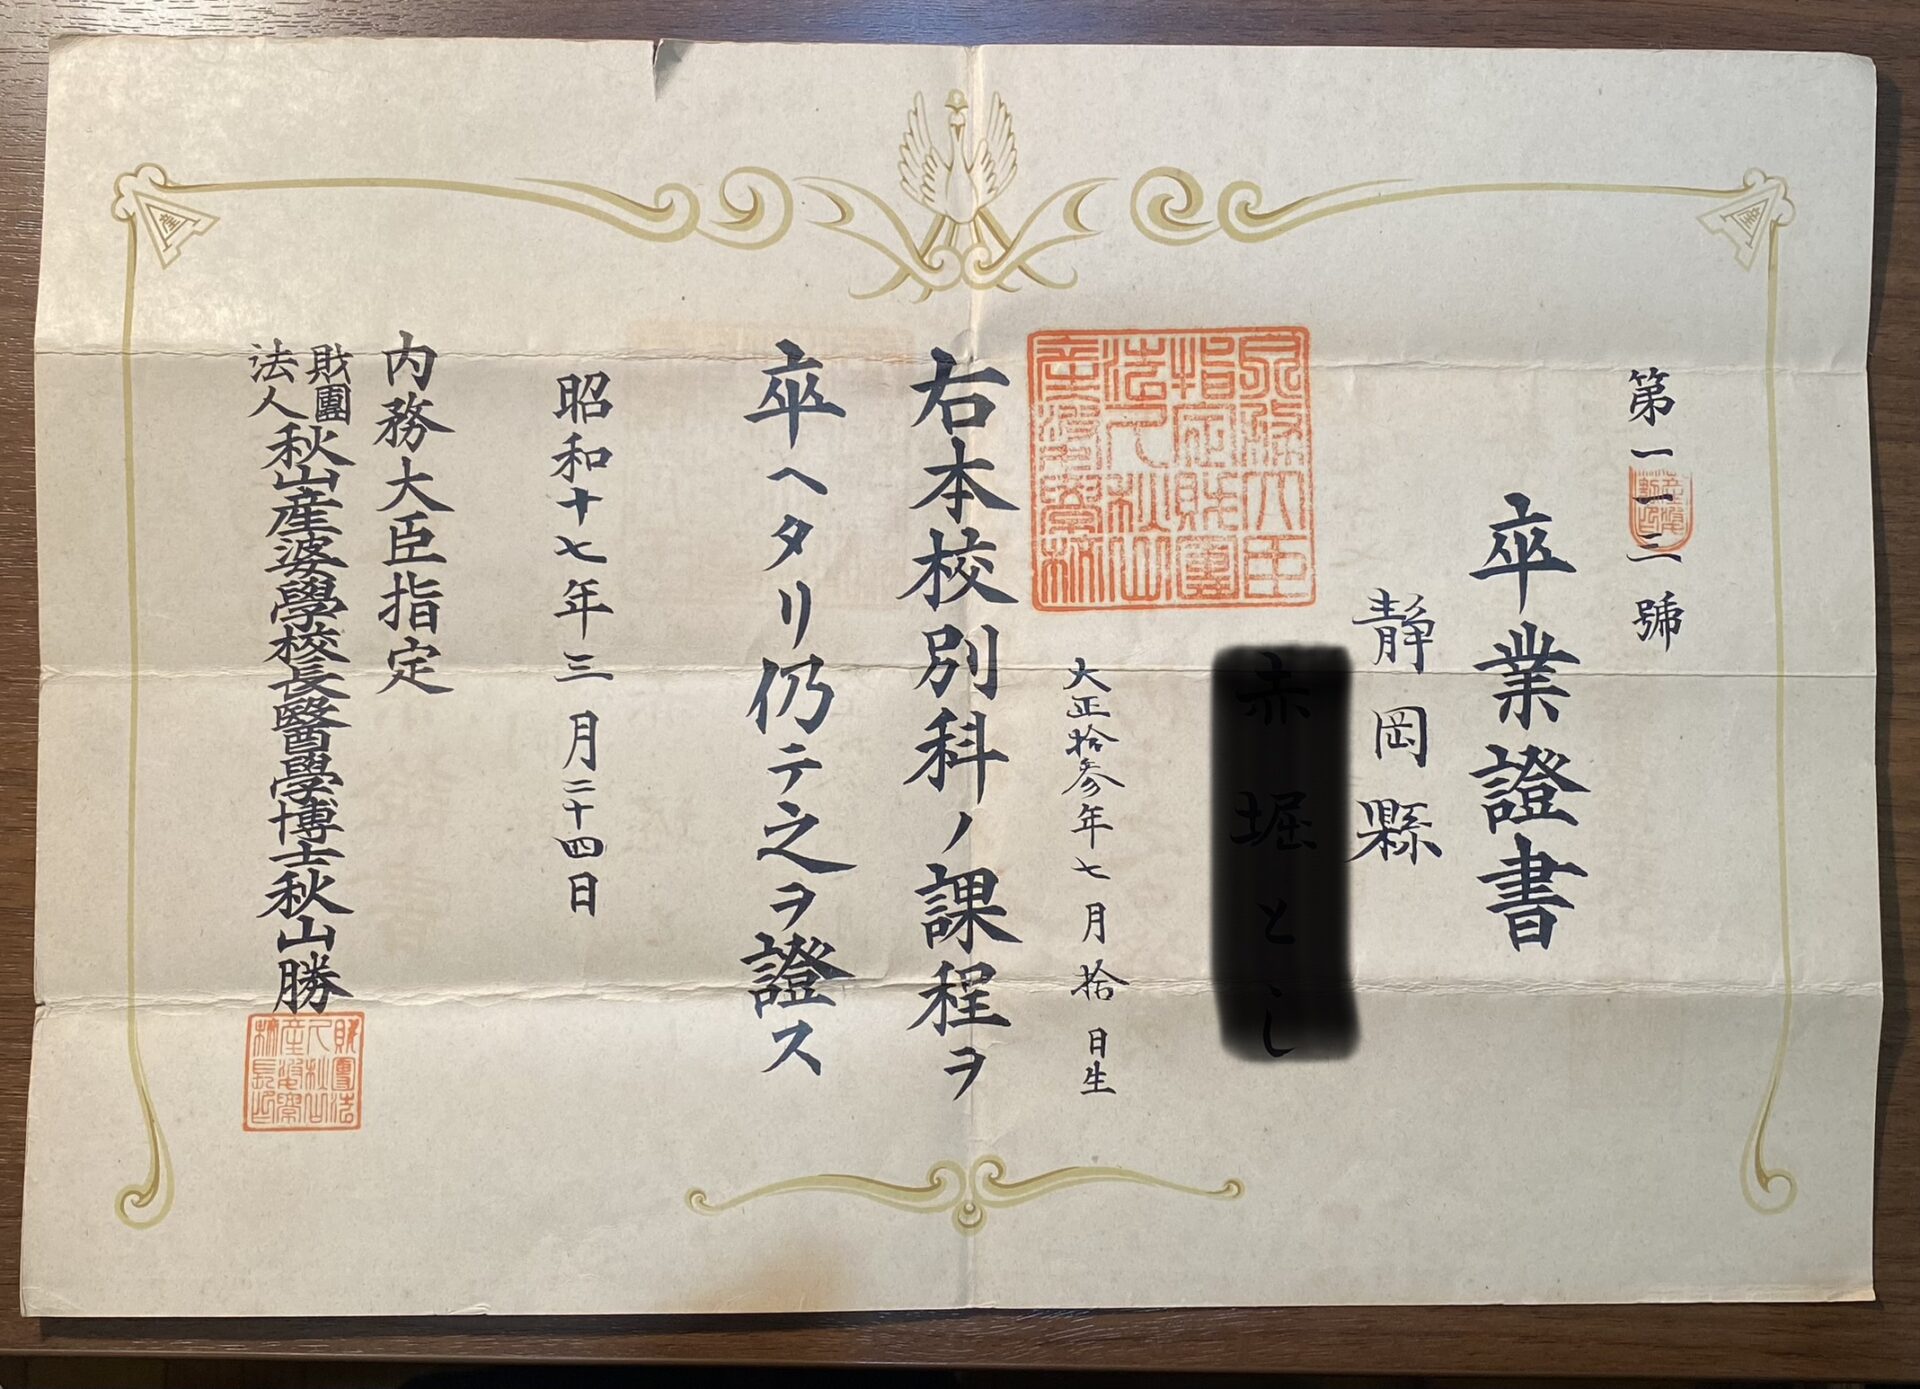 第一一二號
卒業證書
靜岡縣
大正拾參年七月拾日生
内務大臣
指定財團
法人秋山
産婆學校
右本校別科ノ課程ヲ
卒ヘタリ仍テ之ヲ證ス
昭和十七年三月二十四日
内務大臣指定
財團法人秋山産婆學校長醫學博士秋山勝
財團法
人秋山
産婆學
校長印